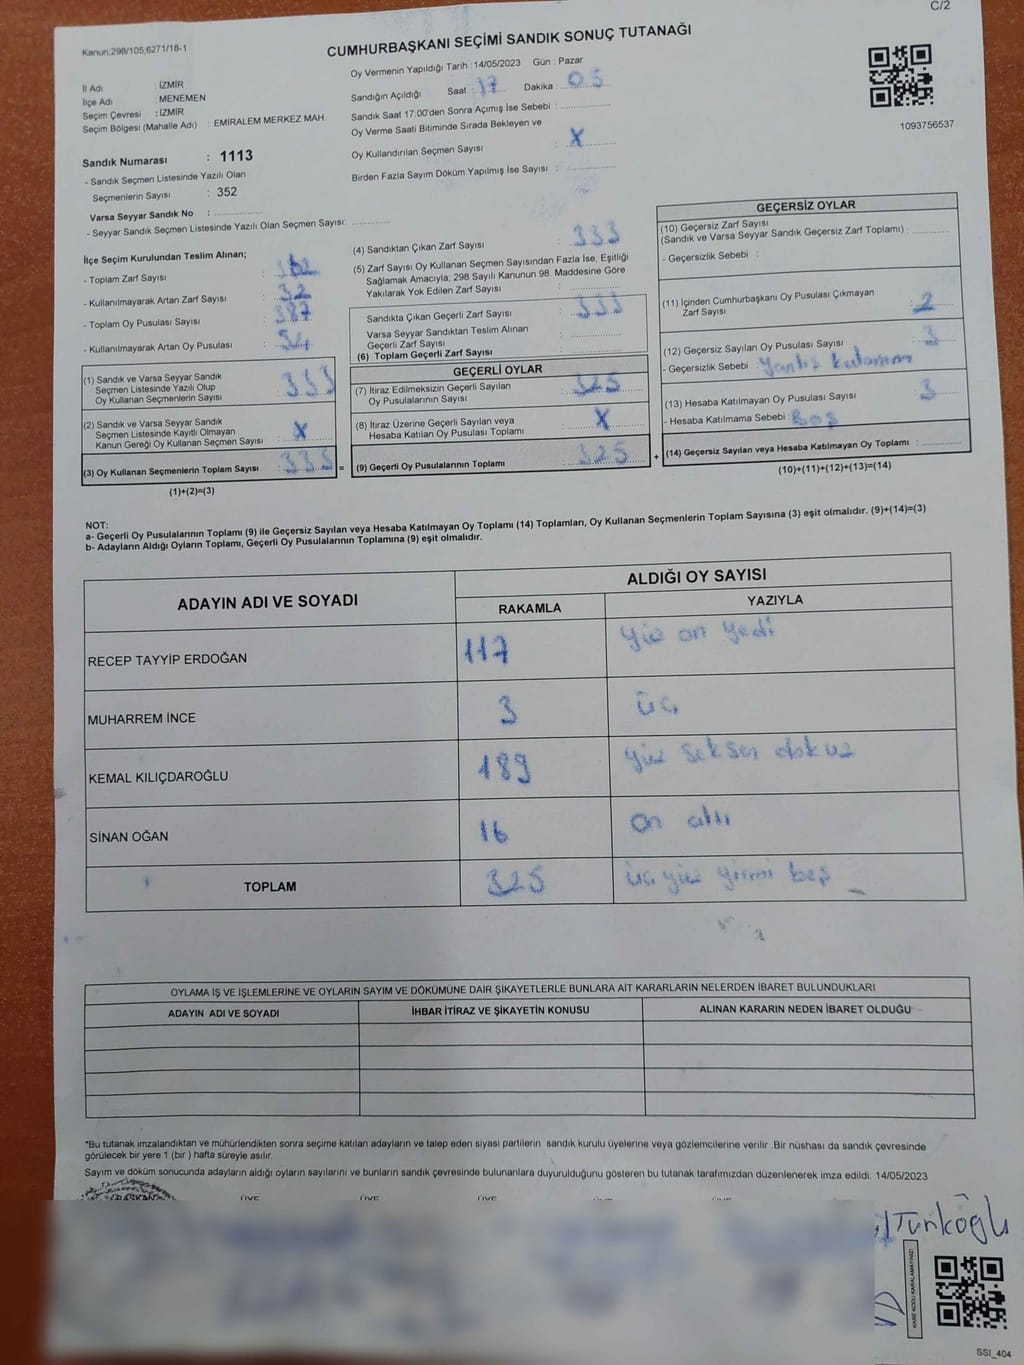 C/2
Kanun:298/105;6271/18-1
CUMHURBAŞKANI SEÇİMİ SANDIK SONUÇ TUTANAĞI
Oy Vermenin Yapıldığı Tarih : 14/05/2023 Gün : Pazar
İl Adı : İZMİR
İlçe Adı : MENEMEN
Seçim Çevresi : İZMİR
Seçim Bölgesi (Mahalle Adı) : EMİRALEM MERKEZ MAH.
Sandığın Açıldığı Saat : 17 Dakika : 05
Sandık Saat 17:00'den Sonra Açımış İse Sebebi :
Oy Verme Saati Bitiminde Sırada Bekleyen ve
Oy Kullandırılan Seçmen Sayısı : X
Birden Fazla Sayım Döküm Yapılmış İse Sayısı :
1093756537
Sandık Numarası : 1113
- Sandık Seçmen Listesinde Yazılı Olan
Seçmenlerin Sayısı : 352
Varsa Seyyar Sandık No :
- Seyyar Sandık Seçmen Listesinde Yazılı Olan Seçmen Sayısı:
İlçe Seçim Kurulundan Teslim Alınan;
- Toplam Zarf Sayısı :
- Kullanılmayarak Artan Zarf Sayısı : 32
- Toplam Oy Pusulası Sayısı : 387
- Kullanılmayarak Artan Oy Pusulası : 54
(1) Sandık ve Varsa Seyyar Sandık
Seçmen Listesinde Yazılı Olup
Oy Kullanan Seçmenlerin Sayısı : 333
(2) Sandık ve Varsa Seyyar Sandık
Seçmen Listesinde Kayıtlı Olmayan
Kanun Gereği Oy Kullanan Seçmen Sayısı : X
(3) Oy Kullanan Seçmenlerin Toplam Sayısı : 333 =
(1)+(2)=(3)
(4) Sandıktan Çıkan Zarf Sayısı : 333
(5) Zarf Sayısı Oy Kullanan Seçmen Sayısından Fazla İse, Eşitliği
Sağlamak Amacıyla, 298 Sayılı Kanunun 98. Maddesine Göre
Yakılarak Yok Edilen Zarf Sayısı :
Sandıkta Çıkan Geçerli Zarf Sayısı : 333
Varsa Seyyar Sandıktan Teslim Alınan
Geçerli Zarf Sayısı :
(6) Toplam Geçerli Zarf Sayısı :
GEÇERLİ OYLAR
(7) İtiraz Edilmeksizin Geçerli Sayılan
Oy Pusulalarının Sayısı : 325
(8) İtiraz Üzerine Geçerli Sayılan veya
Hesaba Katılan Oy Pusulası Toplamı : X
(9) Geçerli Oy Pusulalarının Toplamı : 325 +
GEÇERSİZ OYLAR
(10) Geçersiz Zarf Sayısı
(Sandık ve Varsa Seyyar Sandık Geçersiz Zarf Toplamı) :
- Geçersizlik Sebebi :
(11) İçinden Cumhurbaşkanı Oy Pusulası Çıkmayan
Zarf Sayısı : 2
(12) Geçersiz Sayılan Oy Pusulası Sayısı : 3
- Geçersizlik Sebebi : Yanlış kullanım
(13) Hesaba Katılmayan Oy Pusulası Sayısı : 3
- Hesaba Katılmama Sebebi : Boş
(14) Geçersiz Sayılan veya Hesaba Katılmayan Oy Toplamı :
(10)+(11)+(12)+(13)=(14)
NOT:
a- Geçerli Oy Pusulalarının Toplamı (9) ile Geçersiz Sayılan veya Hesaba Katılmayan Oy Toplamı (14) Toplamları, Oy Kullanan Seçmenlerin Toplam Sayısına (3) eşit olmalıdır. (9)+(14)=(3)
b- Adayların Aldığı Oyların Toplamı, Geçerli Oy Pusulalarının Toplamına (9) eşit olmalıdır.
ADAYIN ADI VE SOYADI
ALDIĞI OY SAYISI
RAKAMLA YAZIYLA
RECEP TAYYİP ERDOĞAN 117 yüz on yedi
MUHARREM İNCE 3 üç
KEMAL KILIÇDAROĞLU 189 yüz seksen dokuz
SİNAN OĞAN 16 on altı
TOPLAM 325 üç yüz yirmi beş
OYLAMA İŞ VE İŞLEMLERİNE VE OYLARIN SAYIM VE DÖKÜMÜNE DAİR ŞİKAYETLERLE BUNLARA AİT KARARLARIN NELERDEN İBARET BULUNDUKLARI
ADAYIN ADI VE SOYADI İHBAR İTİRAZ VE ŞİKAYETİN KONUSU ALINAN KARARIN NEDEN İBARET OLDUĞU
*Bu tutanak imzalandıktan ve mühürlendikten sonra seçime katılan adayların ve talep eden siyasi partilerin sandık kurulu üyelerine veya gözlemcilerine verilir .Bir nüshası da sandık çevresinde
görülecek bir yere 1 (bir ) hafta süreyle asılır.
Sayım ve döküm sonucunda adayların aldığı oyların sayılarını ve bunların sandık çevresinde bulunanlara duyurulduğunu gösteren bu tutanak tarafımızdan düzenlenerek imza edildi. 14/05/2023
BAŞKAN ÜYE ÜYE ÜYE ÜYE ÜYE
Türkoğlu
KARE KODU KARALAMAYINIZ!
SSI_404